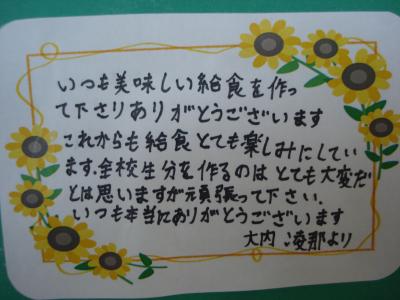 いつも美味しい給食を作っ
て下さりありがとうございます
これからも給食とても楽しみにしてい
ます。全校生分を作るのはとても大変だ
とは思いますが頑張って下さい。
いつも本当にありがとうございます
大内 凌那より